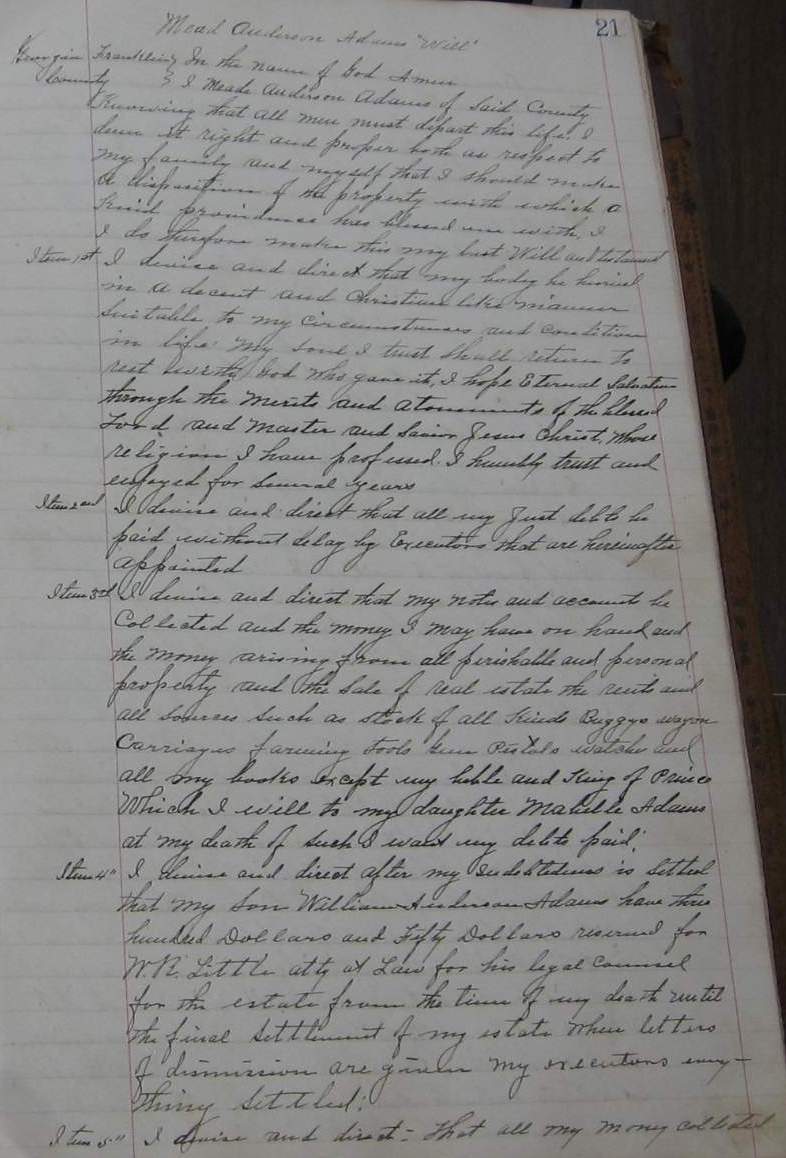 21
Mead Anderson Adams "Will"
Georgia Franklin } In the name of God Amen
County } I Meade Anderson Adams of Said County
Knowing that all men must depart this life. I
deem it right and proper both as respect to
my family and myself that I should make
a disposition of the property with which a
Kind providence has blessed me with, I
I do therefore make this my last Will and testament
Item 1st I devise and direct that my body be buried
in a decent and Christian like manner
Suitable to my Circumstances and Condition
in life. My Soul I trust Shall return to
rest with God who gave it, I hope Eternal Salvation
through the Merits and atonements of the blessed
Lord and Master and Savior Jesus Christ, Whose
religion I have professed. I humbly trust and
enjoyed for Several years
Item 2nd I devise and direct that all my Just debts be
paid without delay by Executors that are hereinafter
appointed
Item 3rd I devise and direct that my notes and accounts be
Collected and the money I may have on hand and
the money arising from all perishable and personal
property and the Sale of real estate the rents and
all sources Such as stock of all Kinds Buggys wagon
Carriages farming tools Gun Pistols watches and
all my books except my bible and King of Prince
Which I will to my daughter Mabelle Adams
at my death of Such I want my debts paid.
Item 4" I devise and direct after my Indebtedness is Settled
that my Son William Anderson Adams have three
hundred Dollars and Fifty Dollars reserved for
W.R. Little atty at Law for his legal Counsel
for the estate from the time of my death until
the final Settlement of my estate when letters
of dismission are given my executors every-
thing Settled.
Item 5" I devise and direct- that all my money collected